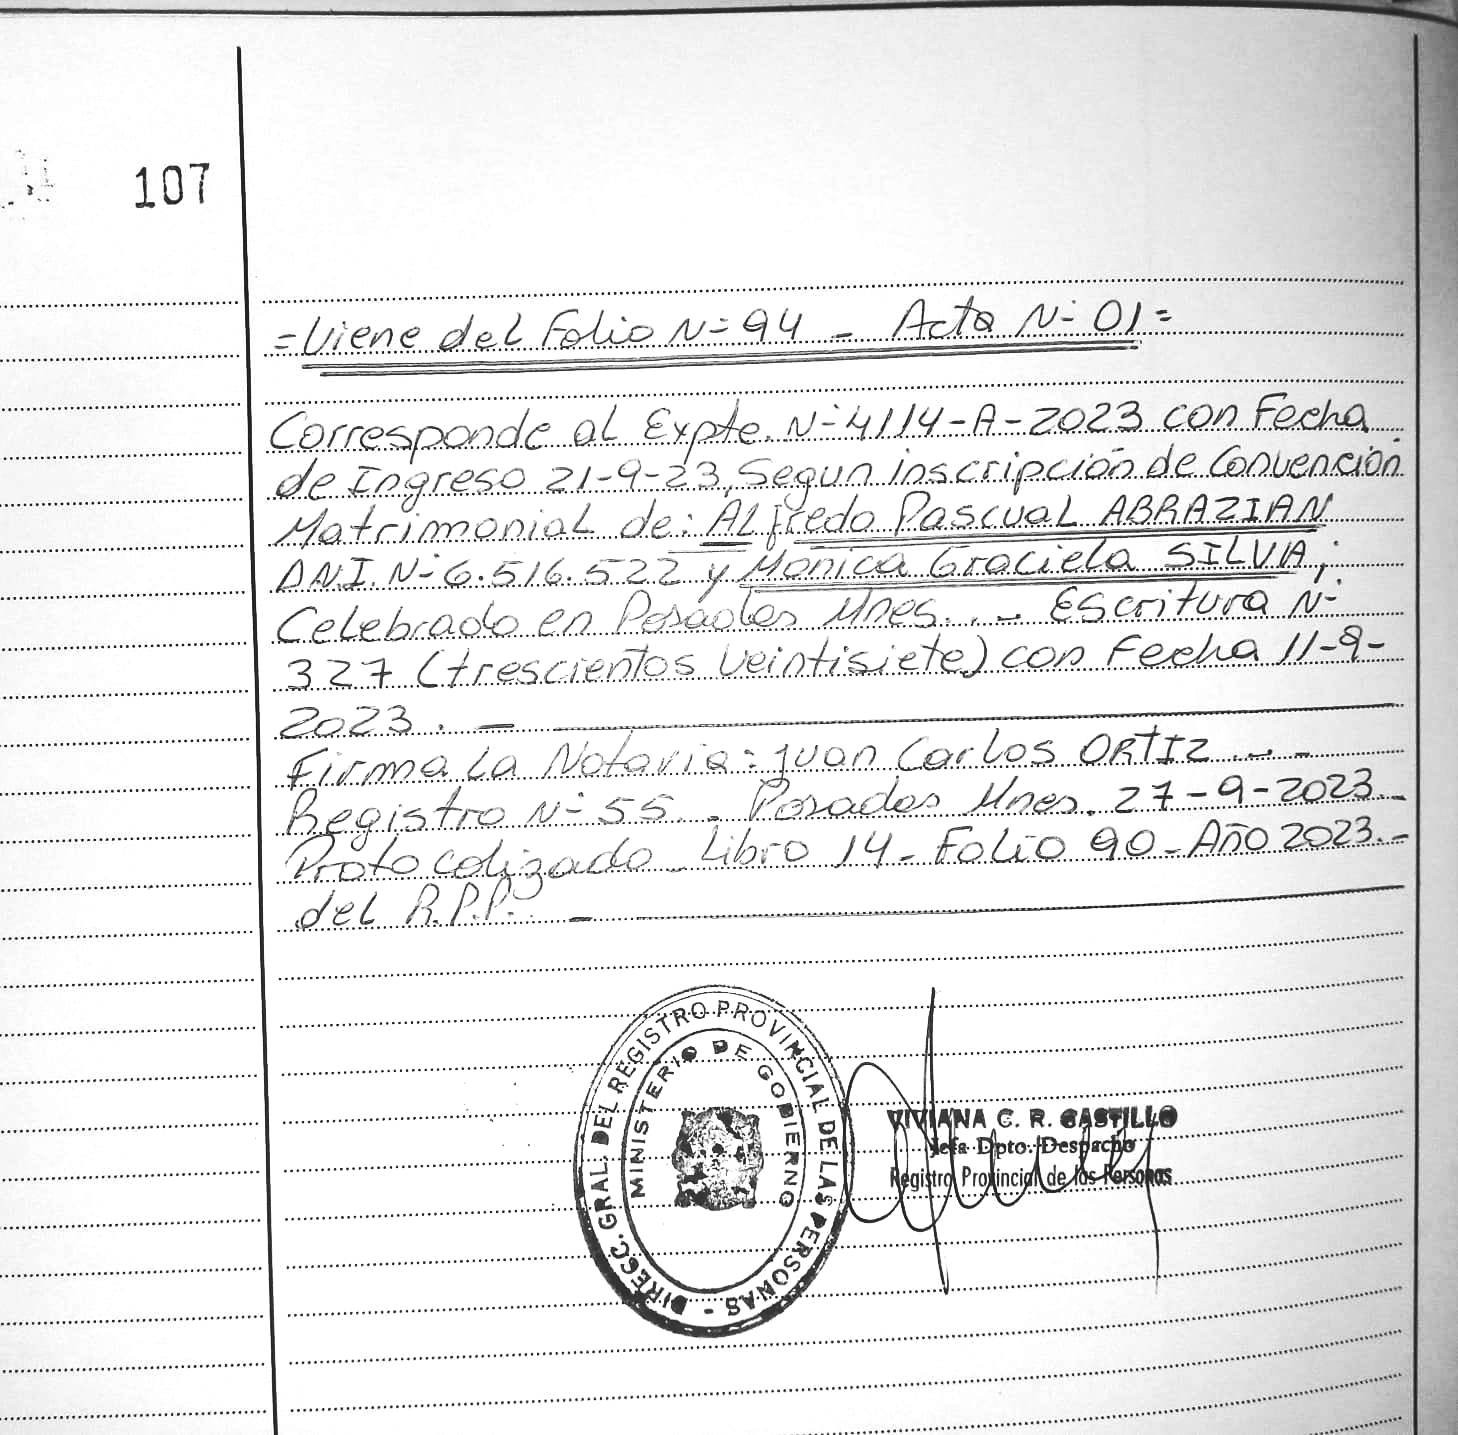 107
=Viene del Folio N= 94 - Acta N- 01=
Corresponde al Expte. N- 4114-A-2023 con Fecha
de Ingreso 21-9-23, Segun inscripción de Convención
Matrimonial de: Alfredo Pascual ABRAZIAN
D.N.I. N- 6.516.522 y Monica Graciela SILVIA;
Celebrado en Posadas Mnes. .- Escritura N-
327 (trescientos veintisiete) con Fecha 11-9-
2023. -
Firma La Notaria: Juan Carlos ORTIZ .- -
Registro N- 55. . Posadas Mnes. 27-9-2023.-
Protocolizado Libro 14- Folio 90- Año 2023.-
del R.P.P. -
DIRECC. GRAL. DEL REGISTRO PROVINCIAL DE LAS PERSONAS -
MINISTERIO DE GOBIERNO
VIVIANA C. R. CASTILLO
Jefa Dpto. Despacho
Registro Provincial de las Personas